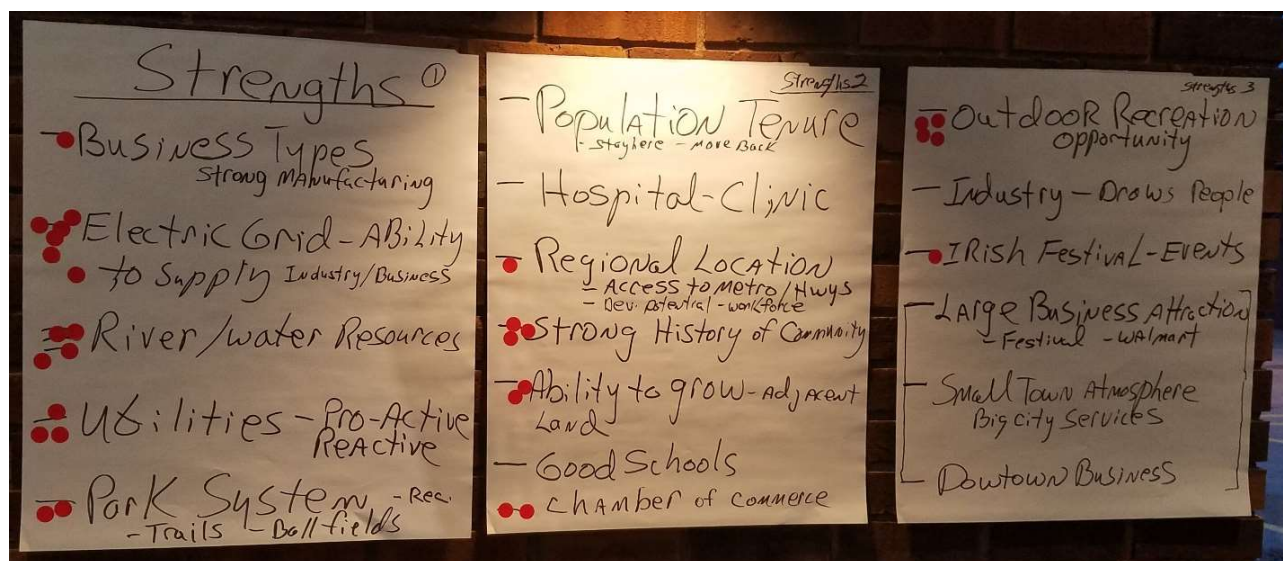 Strengths ①
- Business Types
Strong Manufacturing
- Electric Grid - Ability
to Supply Industry/Business
- River/water Resources
- Utilities - Pro-Active
ReActive
- Park System - Rec.
- Trails - Ball fields
Strengths 2
- Population Tenure
- Stay here - Move Back
- Hospital - Clinic
- Regional Location
- Access to Metro/Hwys
- Dev. potential - workforce
- Strong History of Community
- Ability to grow - Adjacent
Land
- Good Schools
- Chamber of Commerce
Strengths 3
- Outdoor Recreation
Opportunity
- Industry - Draws People
- Irish Festival - Events
- Large Business Attraction
- Festival - Walmart
- Small Town Atmosphere
Big city Services
- Dowtown Business